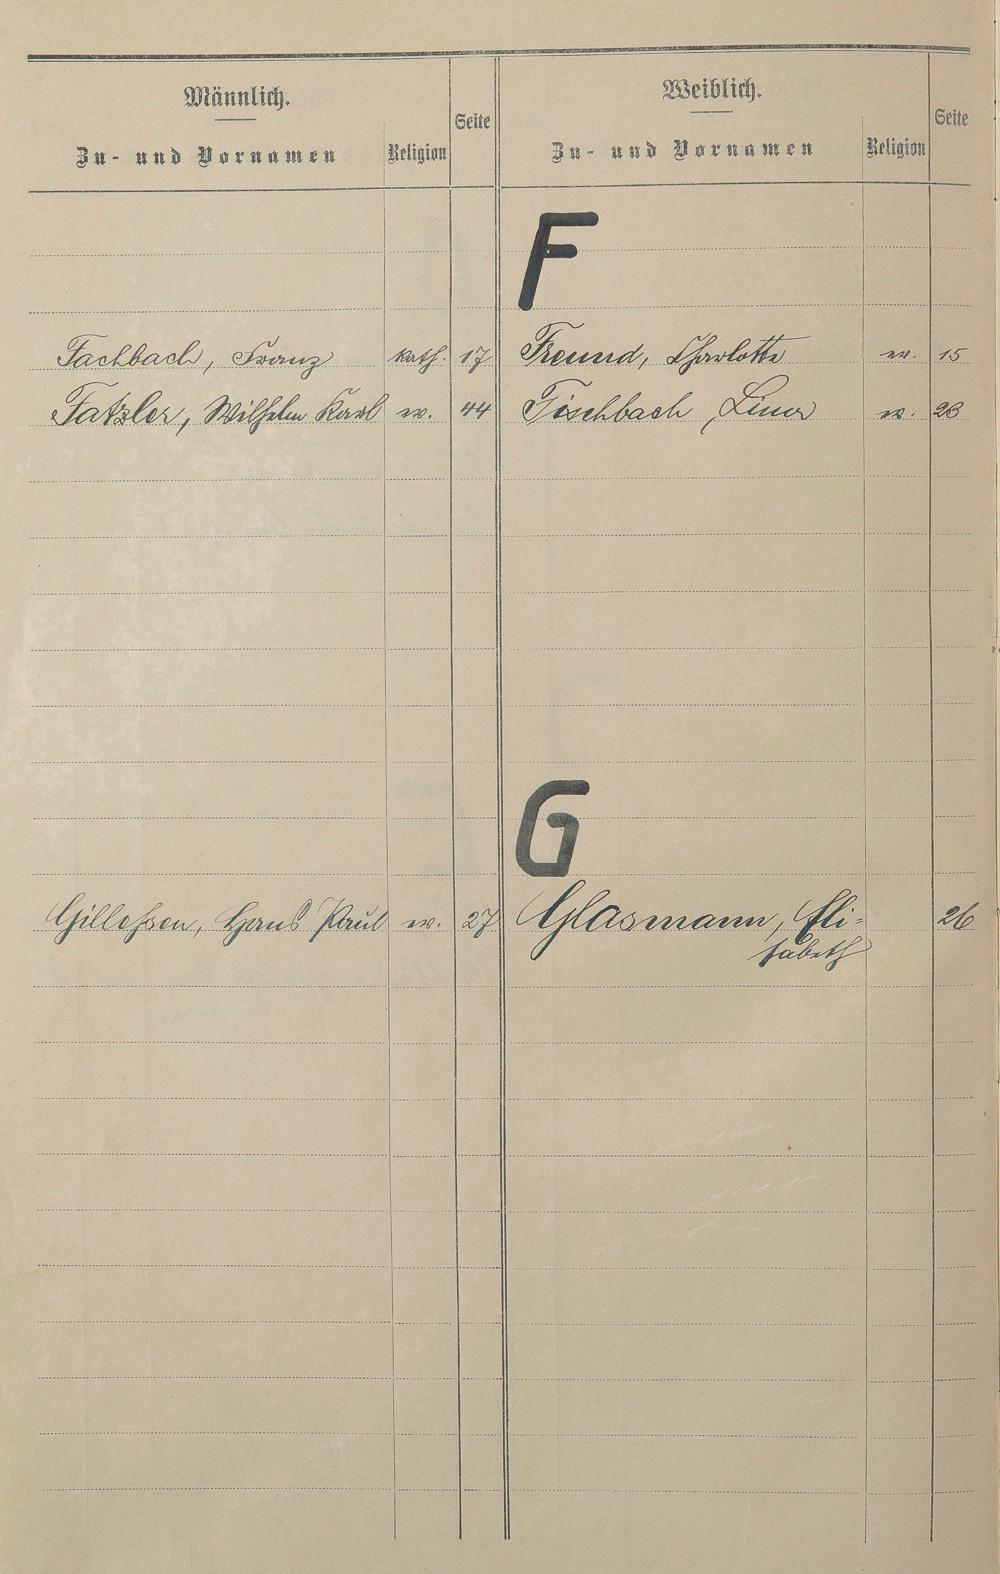 Männlich.
Zu- und Vornamen Religion Seite
Weiblich.
Zu- und Vornamen Religion Seite
F
Fachbach, Franz kath. 17 Freund, Charlotte ev. 15
Fatzler, Wilhelm Karl ev. 44 Fischbach, Lina ev. 23
G
Gillessen, Hans Paul ev. 27 Glasmann, Eli-
sabeth 26